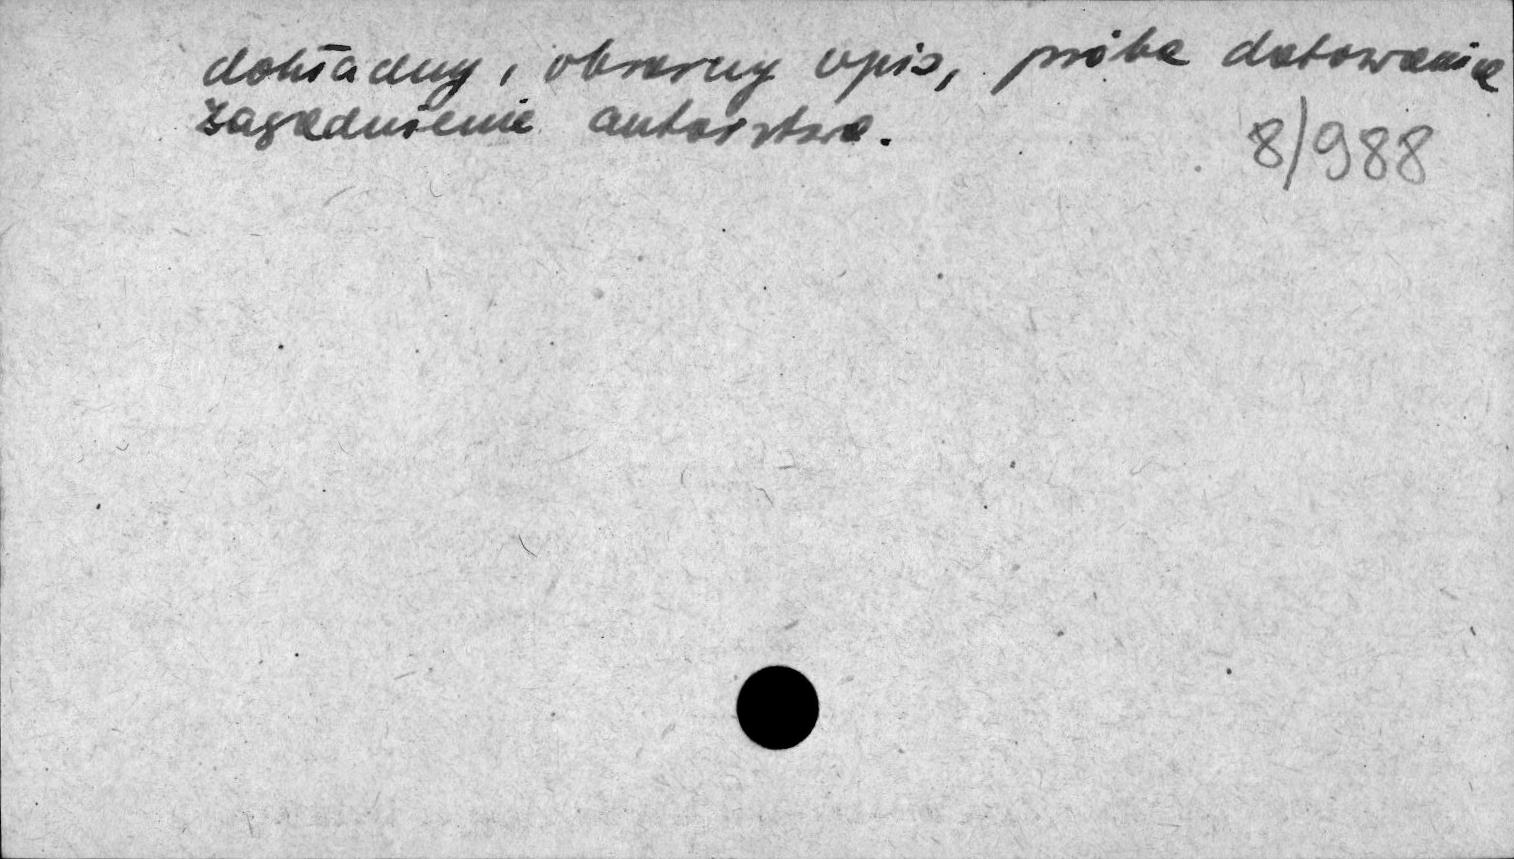 dokładny, obszerny opis, próba datowania
zagadnienie autorstwa.
8/988